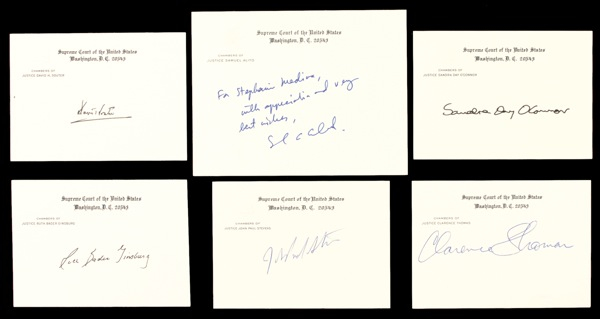 Supreme Court of the United States
Washington, D. C. 20543
CHAMBERS OF
JUSTICE DAVID H. SOUTER
David Souter
Supreme Court of the United States
Washington, D. C. 20543
CHAMBERS OF
JUSTICE SAMUEL ALITO
For Stephanie Medina,
with appreciation and very
best wishes,
Supreme Court of the United States
Washington, D. C. 20543
CHAMBERS OF
JUSTICE SANDRA DAY O'CONNOR
Sandra Day O'Connor
Supreme Court of the United States
Washington, D. C. 20543
CHAMBERS OF
JUSTICE RUTH BADER GINSBURG
Ruth Bader Ginsburg
Supreme Court of the United States
Washington, D. C. 20543
CHAMBERS OF
JUSTICE JOHN PAUL STEVENS
Supreme Court of the United States
Washington, D. C. 20543
CHAMBERS OF
JUSTICE CLARENCE THOMAS
Clarence Thomas